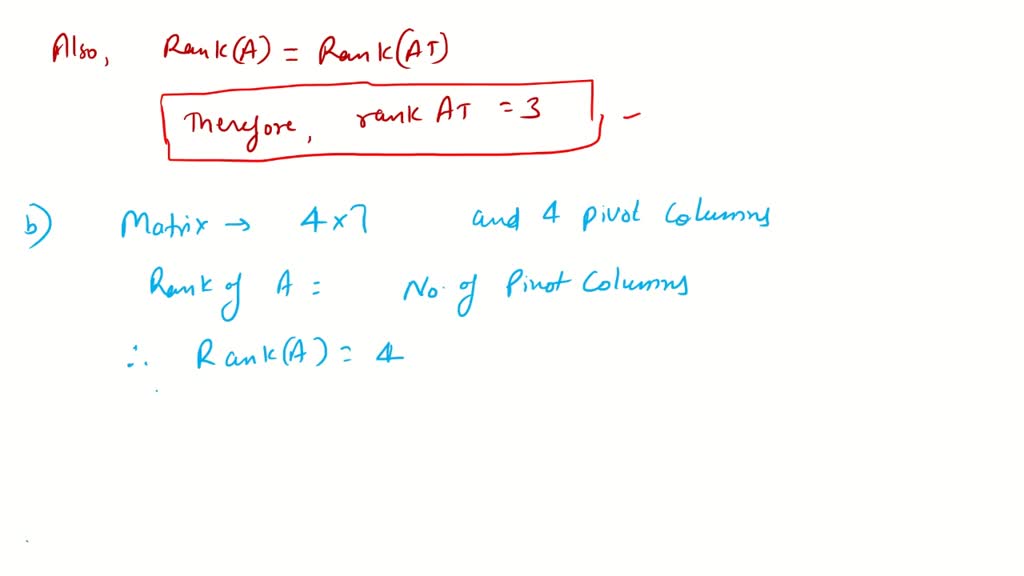 Also, Rank(A) = Rank(AT)
Therefore, rank AT = 3
b) Matrix → 4x7 and 4 pivot columns
Rank of A = No. of Pivot Columns
∴ Rank(A) = 4